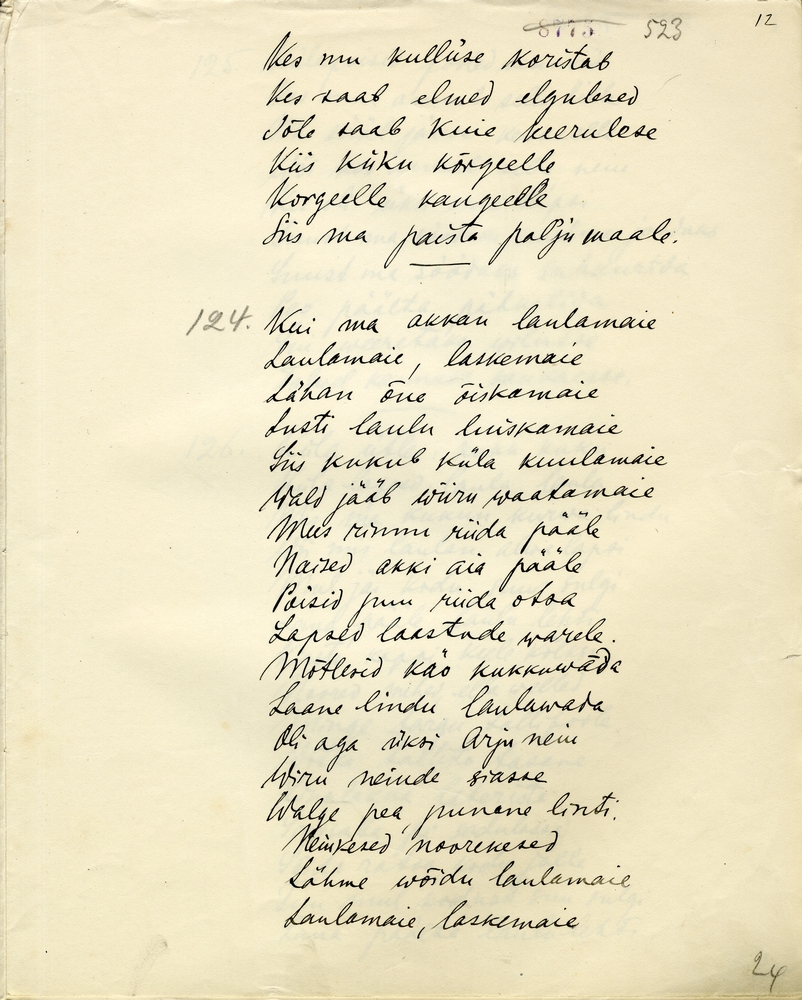 8775 523 12
Kes mu kulluse koristab
Kes saab elmed elgulesed
Jõle saab kuie keerulese
Kiis kiiku kõrgeelle
Korgeelle kangeelle
Siis ma paista palju maale.
124. Kui ma akkan laulamaie
Laulamaie, laskemaie
Lähan õue õiskamaie
Lusti laulu luiskamaie
Siis kukub küla kuulamaie
Wald jääb wiiru waatamaie
Mees rinnu riida pääle
Naised akki aia pääle
Poisid puu riida otsa
Lapsed laastude warele.
Mõtlesid käo kukkuwäda
Laane lindu laulawada
Oli aga üksi Arju nein
Wiru neiude siasse
Walge pea, punane linti.
Neiukesed noorekesed
Lähme wõidu laulamaie
Laulamaie, laskemaie
24